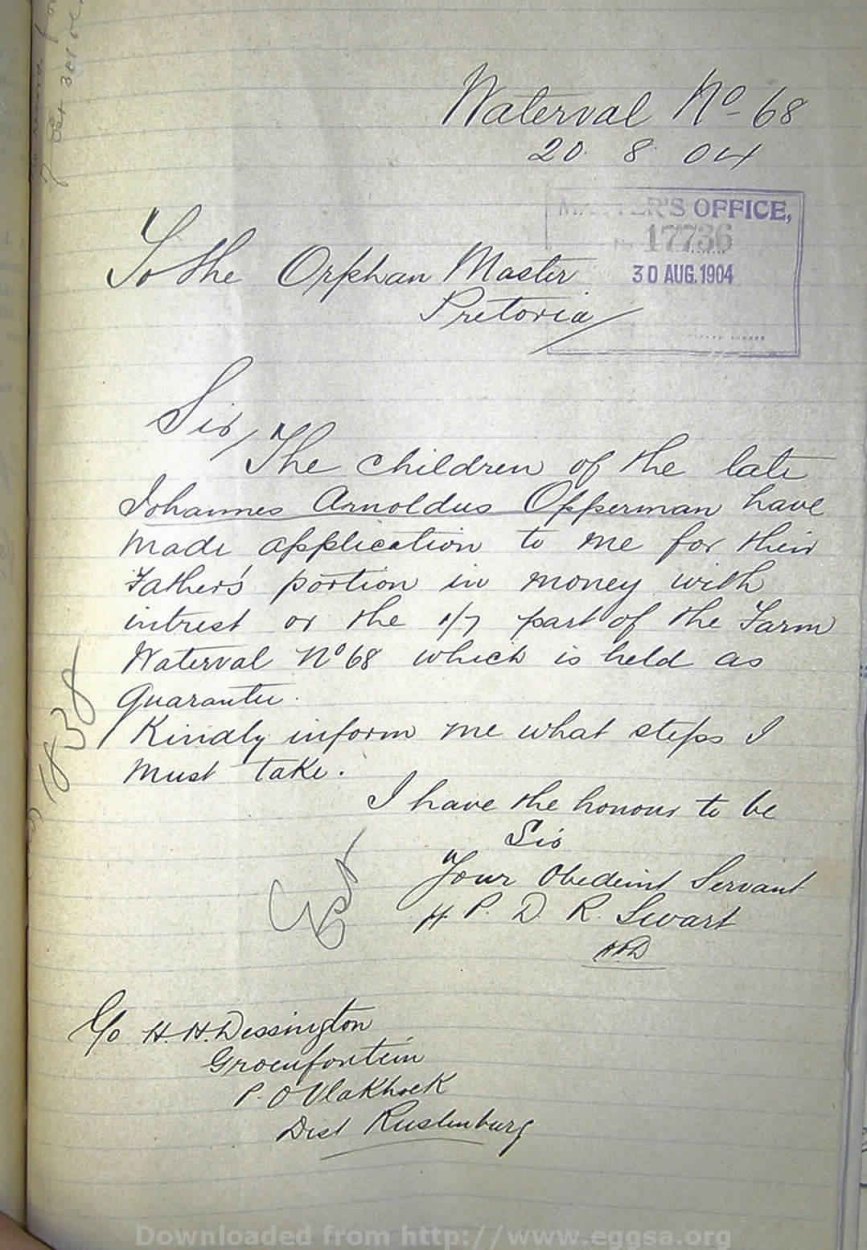 Waterval No 68
20. 8. 04
MASTER'S OFFICE,
No 17736
30 AUG. 1904
To the Orphan Master
Pretoria
Sir,
The children of the late
Johannes Arnoldus Opperman have
made application to me for their
Father's portion in money with
intrest or the 1/7 part of the Farm
Waterval No 68 which is held as
guarantee.
Kindly inform me what steps I
must take.
I have the honour to be
Sir
Your Obedeint Servant
H P. D. R. Swart
HHD
1838
C/o H. H. Dessington
Groenfontein
P. O Vlakhoek
Dist Rustenburg
Downloaded from http://www.eggsa.org